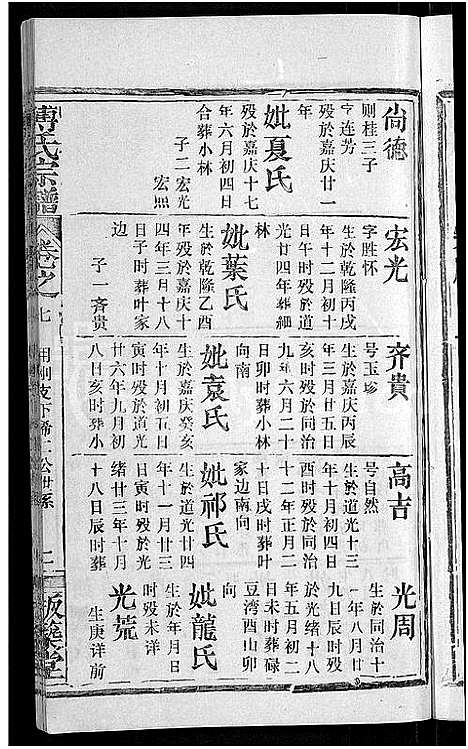 尙德
則桂三子
字連芳
殁於嘉庆廿一
年
妣夏氏
殁於嘉庆十七
年六月初四日
合葬小林
子二宏光
宏熙
宏光
字胜怀
生於乾隆丙戌
年十二月初十
日午時殁於道
光廿四年葬細
林
妣葉氏
生於乾隆乙酉
年殁於嘉庆十
四年三月十八
日子時葬叶家
边
子一斉貴
齐貴
号玉珍
生於嘉庆丙辰
年三月廿五日
亥時殁於同治
九年六月二十
日卯時葬小林
向南
妣袁氏
生於嘉庆癸亥
年十月初五日
寅時殁於道光
廿六年九月初
八日亥時葬小
高吉
号自然
生於道光十三
年十月初四日
酉時殁於同治
十二年正月二
十日戌時葬叶
家边南向
妣祁氏
生於道光廿四
年十一月廿三
日寅時殁於光
緒廿三年十月
十八日辰時葬
光周
生於同治十
一年八月廿
九日辰時殁
於光绪十八
年五月初二
日未時葬碌
豆湾酉山卯
向
妣龍氏
生於年月日
時殁未洋
光荒
生庚详前
傅氏宗譜
卷之七
用訓支下稀二公世系
二
版築堂